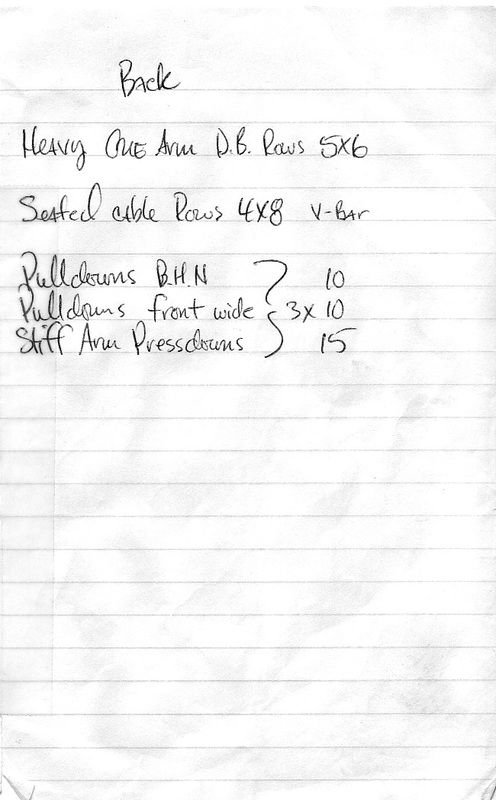 Back
Heavy One Arm D.B. Rows 5x6
Seated cable Rows 4x8 V-Bar
Pulldowns B.H.N 10
Pulldowns front wide 3x 10
Stiff Arm Pressdowns 15